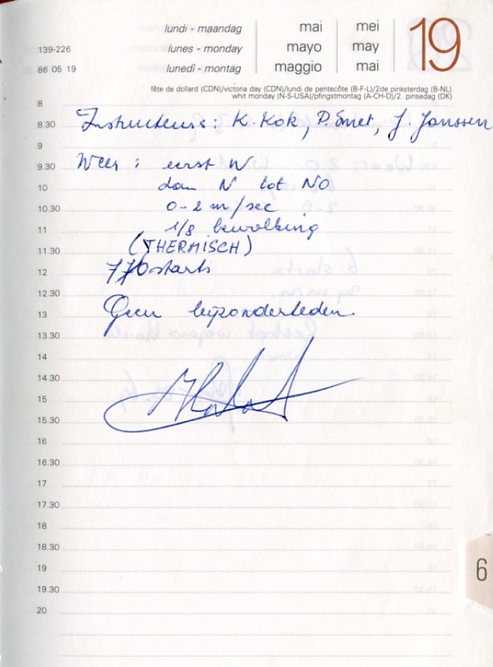 lundi - maandag
lunes - monday
lunedì - montag
mai mei
mayo may
maggio mai
19
139-226
86 05 19
fête de dollard (CDN)/victoria day (CDN)/lundi de pentecôte (B-F-L)/2de pinksterdag (B-NL)
whit monday (N-S-USA)/pfingstmontag (A-CH-D)/2. pinsedag (DK)
8
8.30 Instructeurs: K. Kok, P. Smet, J. Janssen
9
9.30 Weer: eerst W
10 dan N tot NO
10.30 0-2 m/sec
11 1/8 bewolking
11.30 (THERMISCH)
12 starts
12.30
13 Geen bijzonderheden.
13.30
14
14.30
15
15.30
16
16.30
17
17.30
18
18.30
19
19.30
20
6